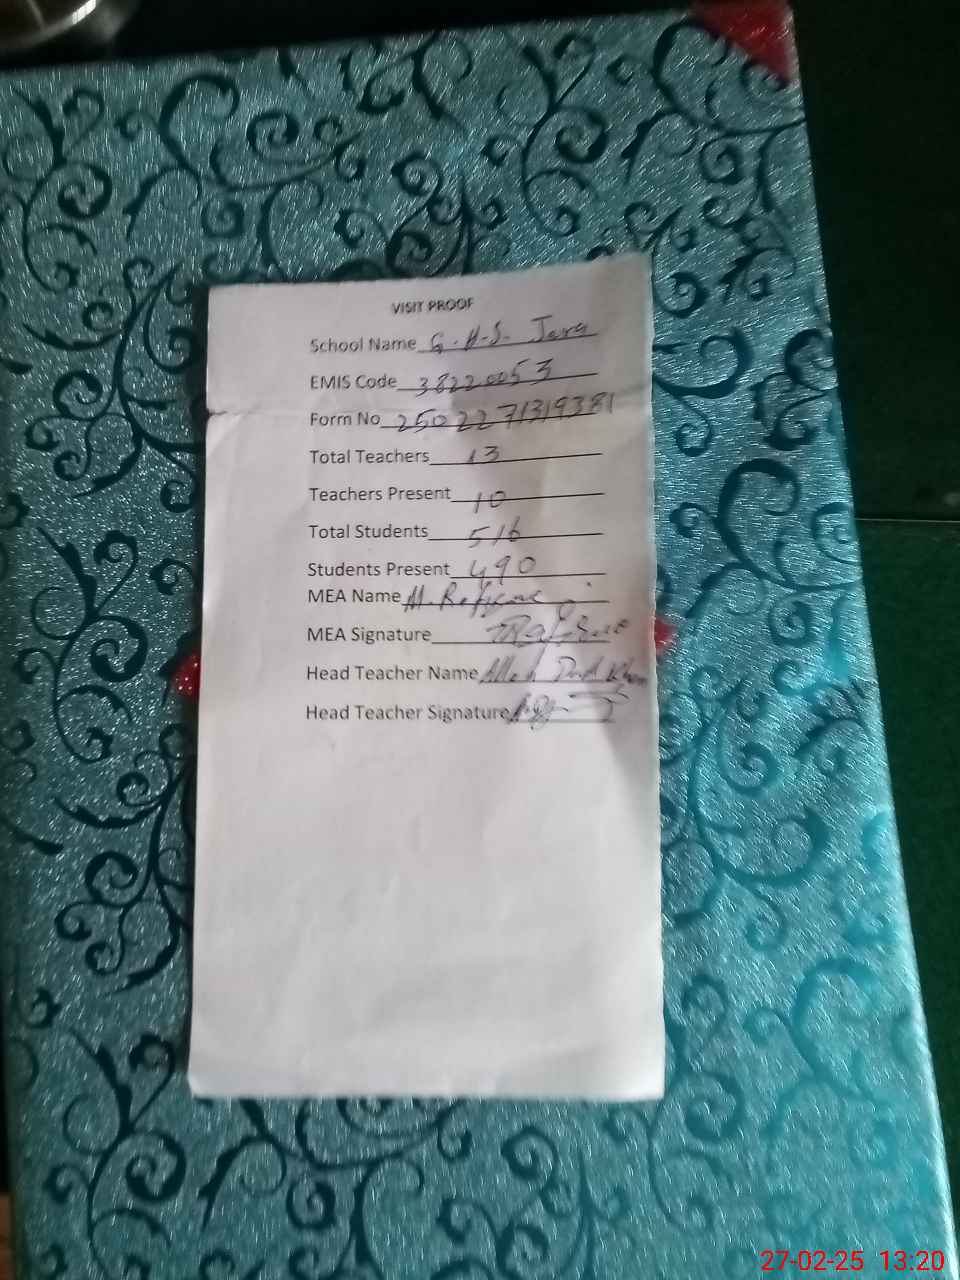 VISIT PROOF
School Name G.H.S. Jara
EMIS Code 38220053
Form No 2502271319381
Total Teachers 13
Teachers Present 10
Total Students 516
Students Present 490
MEA Name M. Rafique
MEA Signature
Head Teacher Name Allah Dad Khan
Head Teacher Signature
27-02-25 13:20